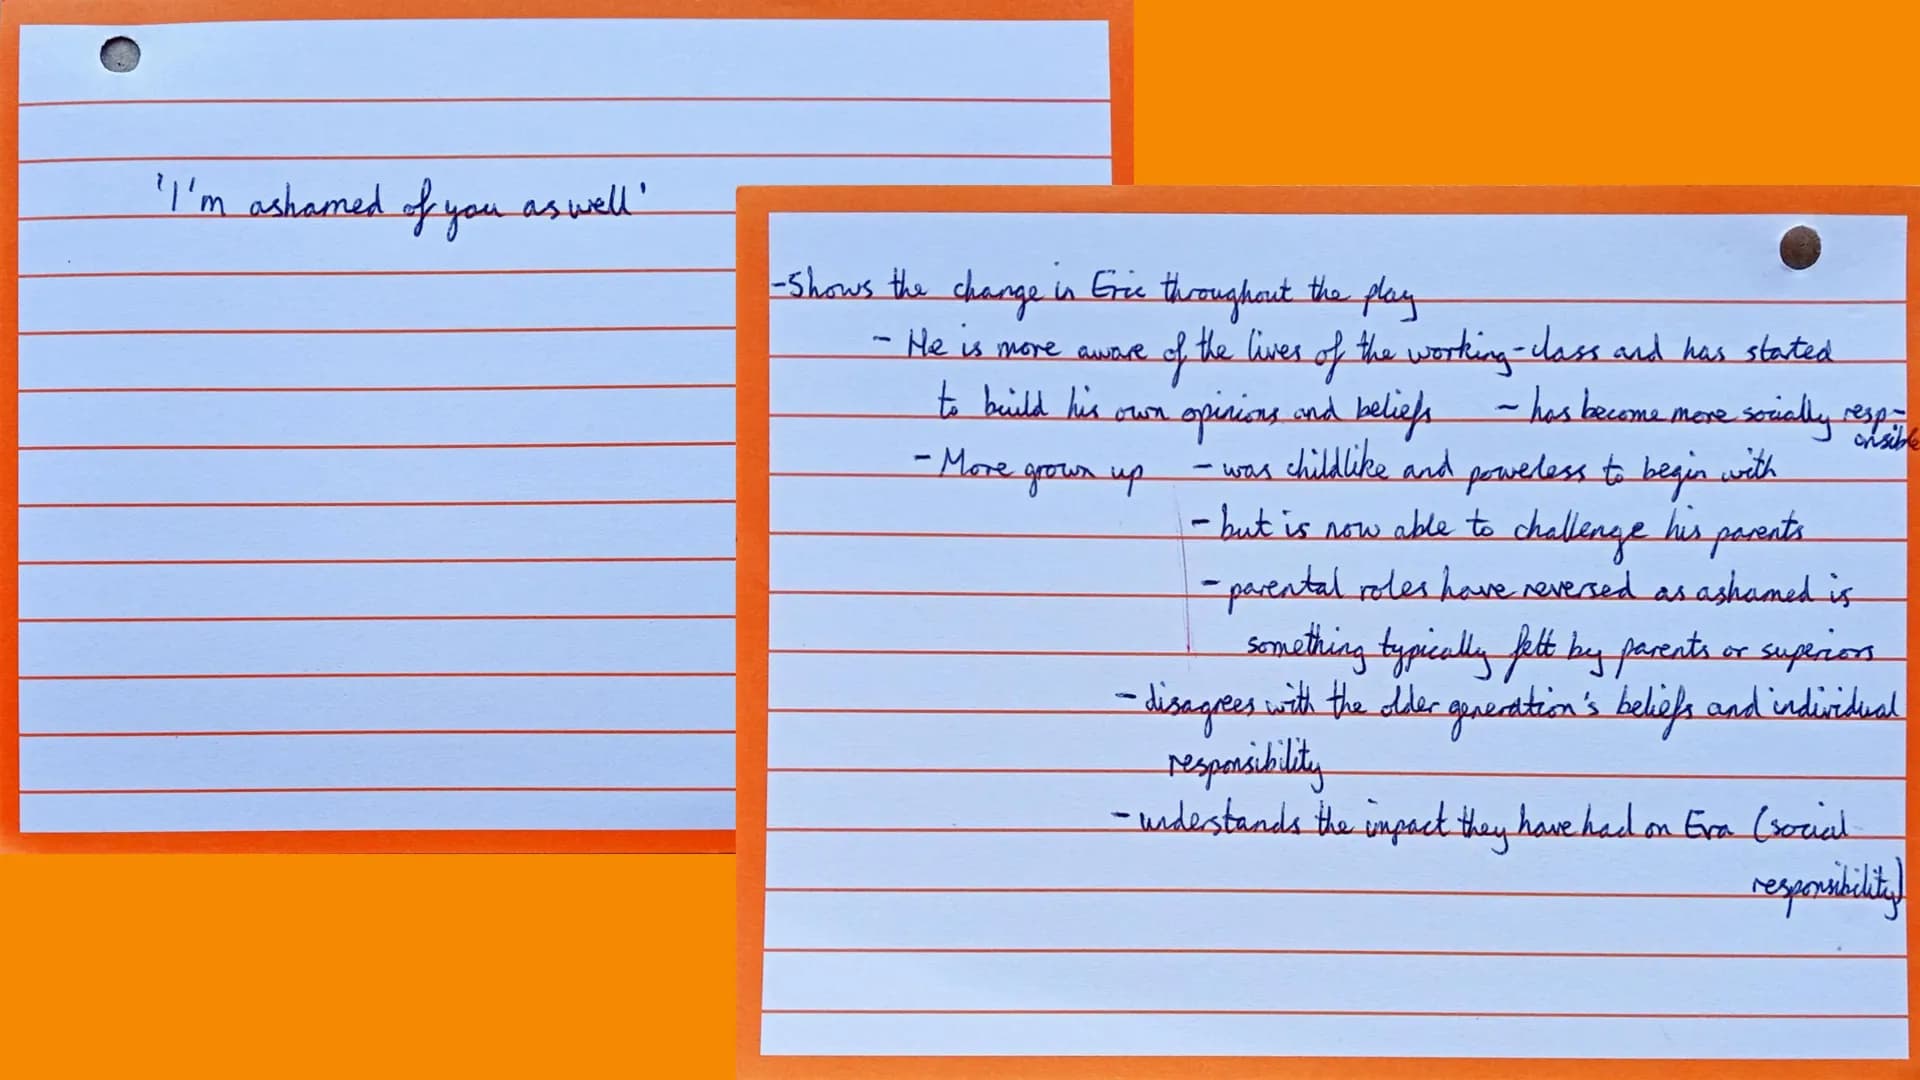 'I'm ashamed of you as well'
-Shows the change in Eric throughout the play
- He is more aware of the lives of the working-class and has stated
to build his own opinions and beliefs - has become more socially resp-
onsible
- More grown up - was childlike and powerless to begin with
- but is now able to challenge his parents
- parental roles have reversed as ashamed is
something typically felt by parents or superiors
- disagrees with the older generation's beliefs and individual
responsibility
- understands the impact they have had on Eva (social
responsibility)